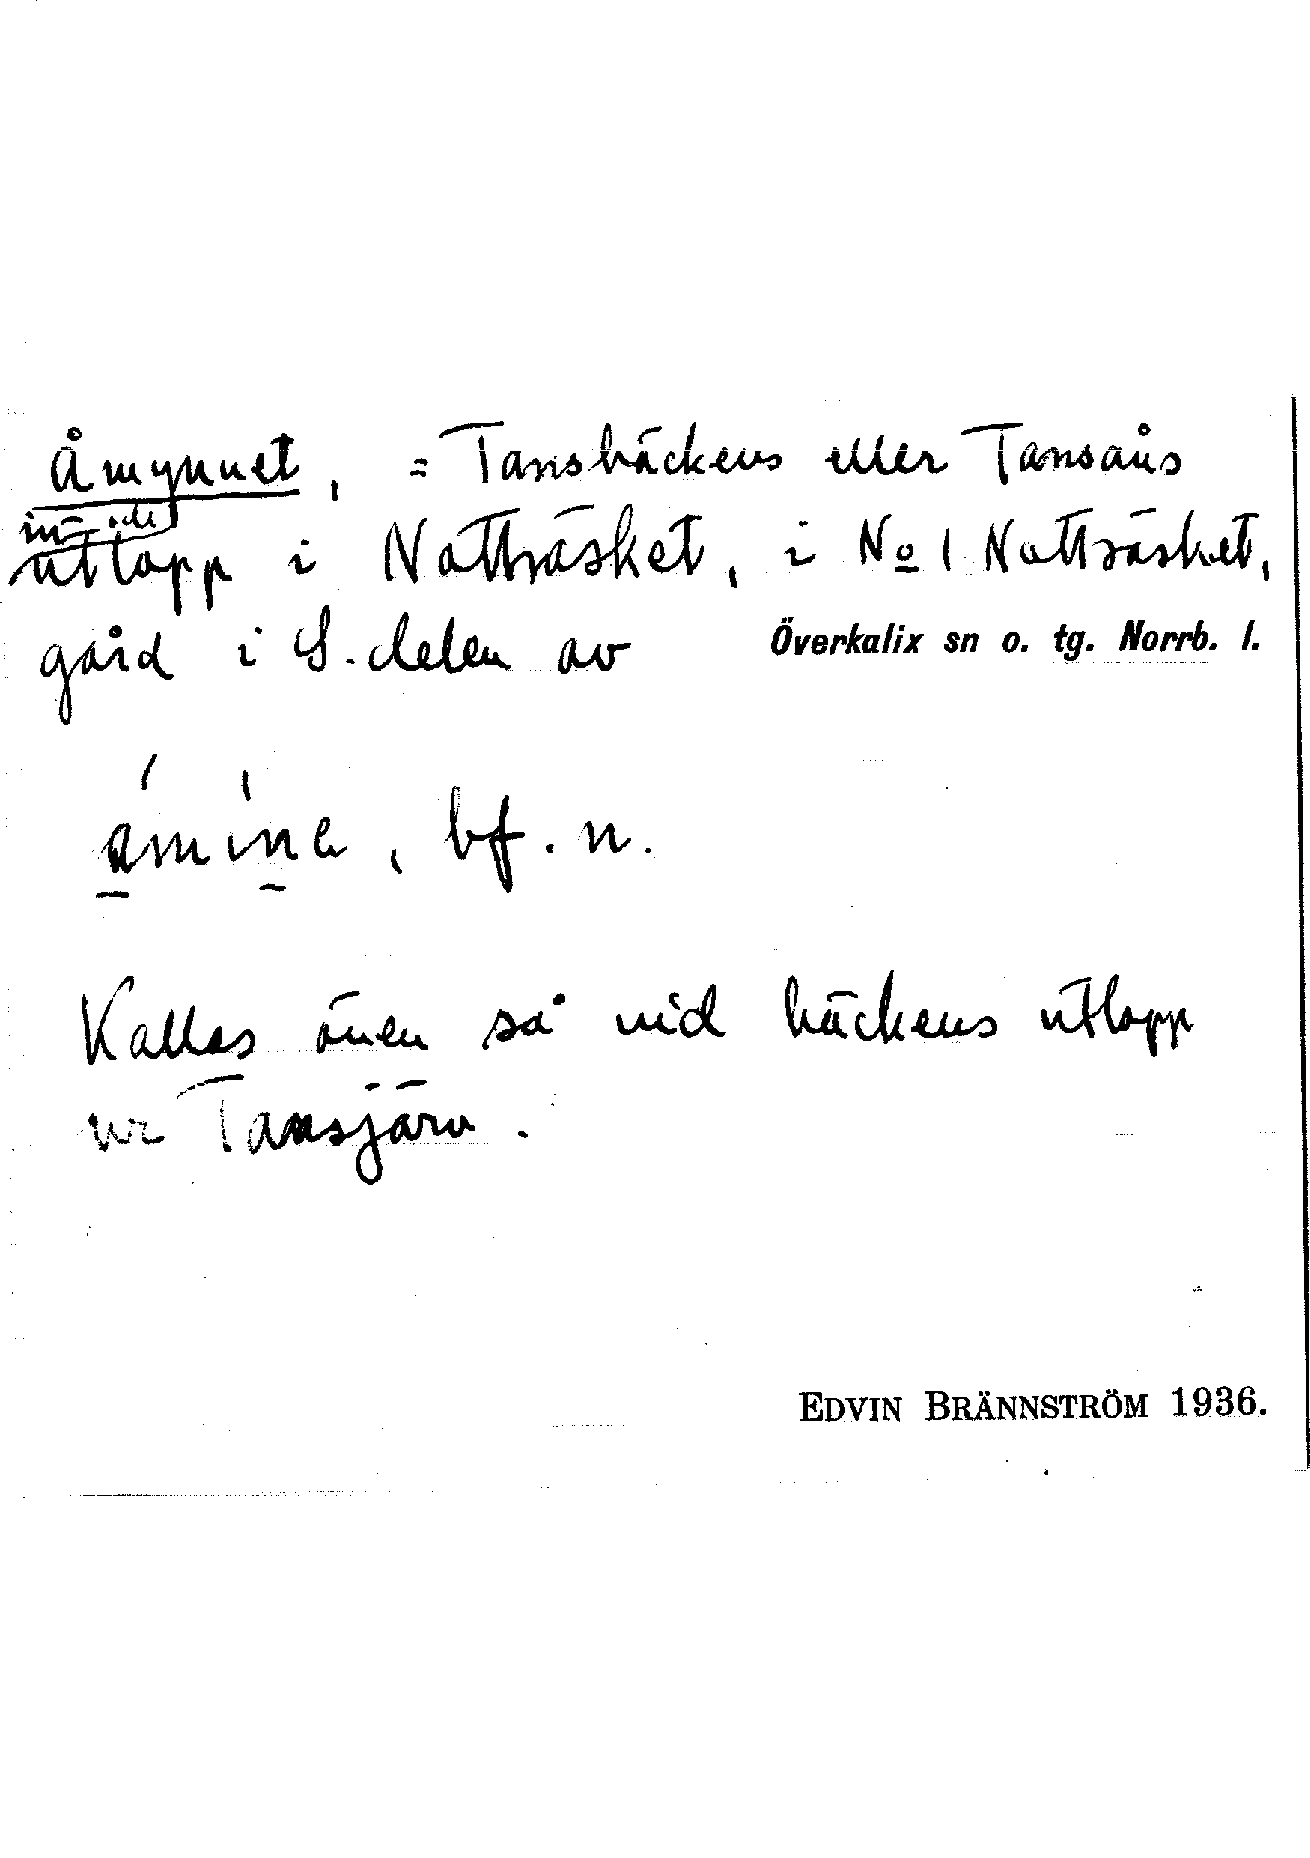 Åmynnet, = Tansbäckens eller Tansåns
utlopp i Notträsket, i No 1 Notträsket,
gård i S. delen av Överkalix sn o. tg. Norrb. l.
åmine, bf. n.
Kallas även så vid bäckens utlopp
ur Tansjärv.
EDVIN BRÄNNSTRÖM 1936.